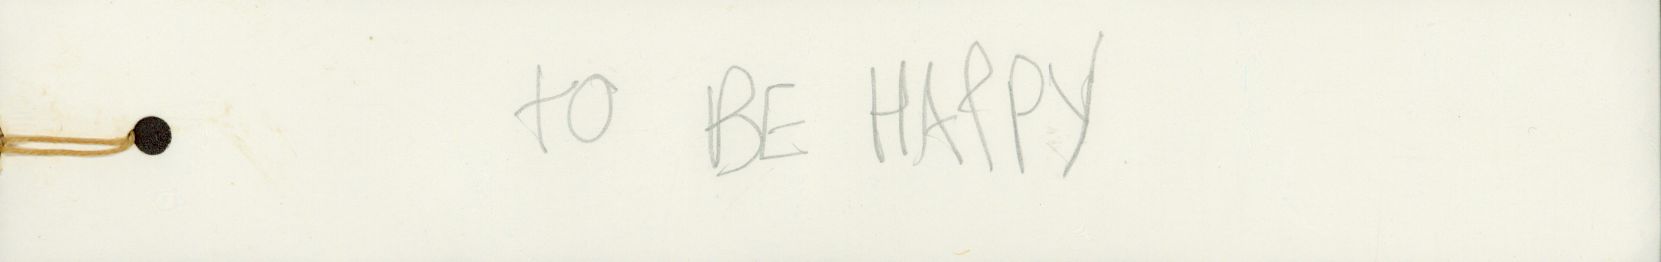 tO BE HAPPY